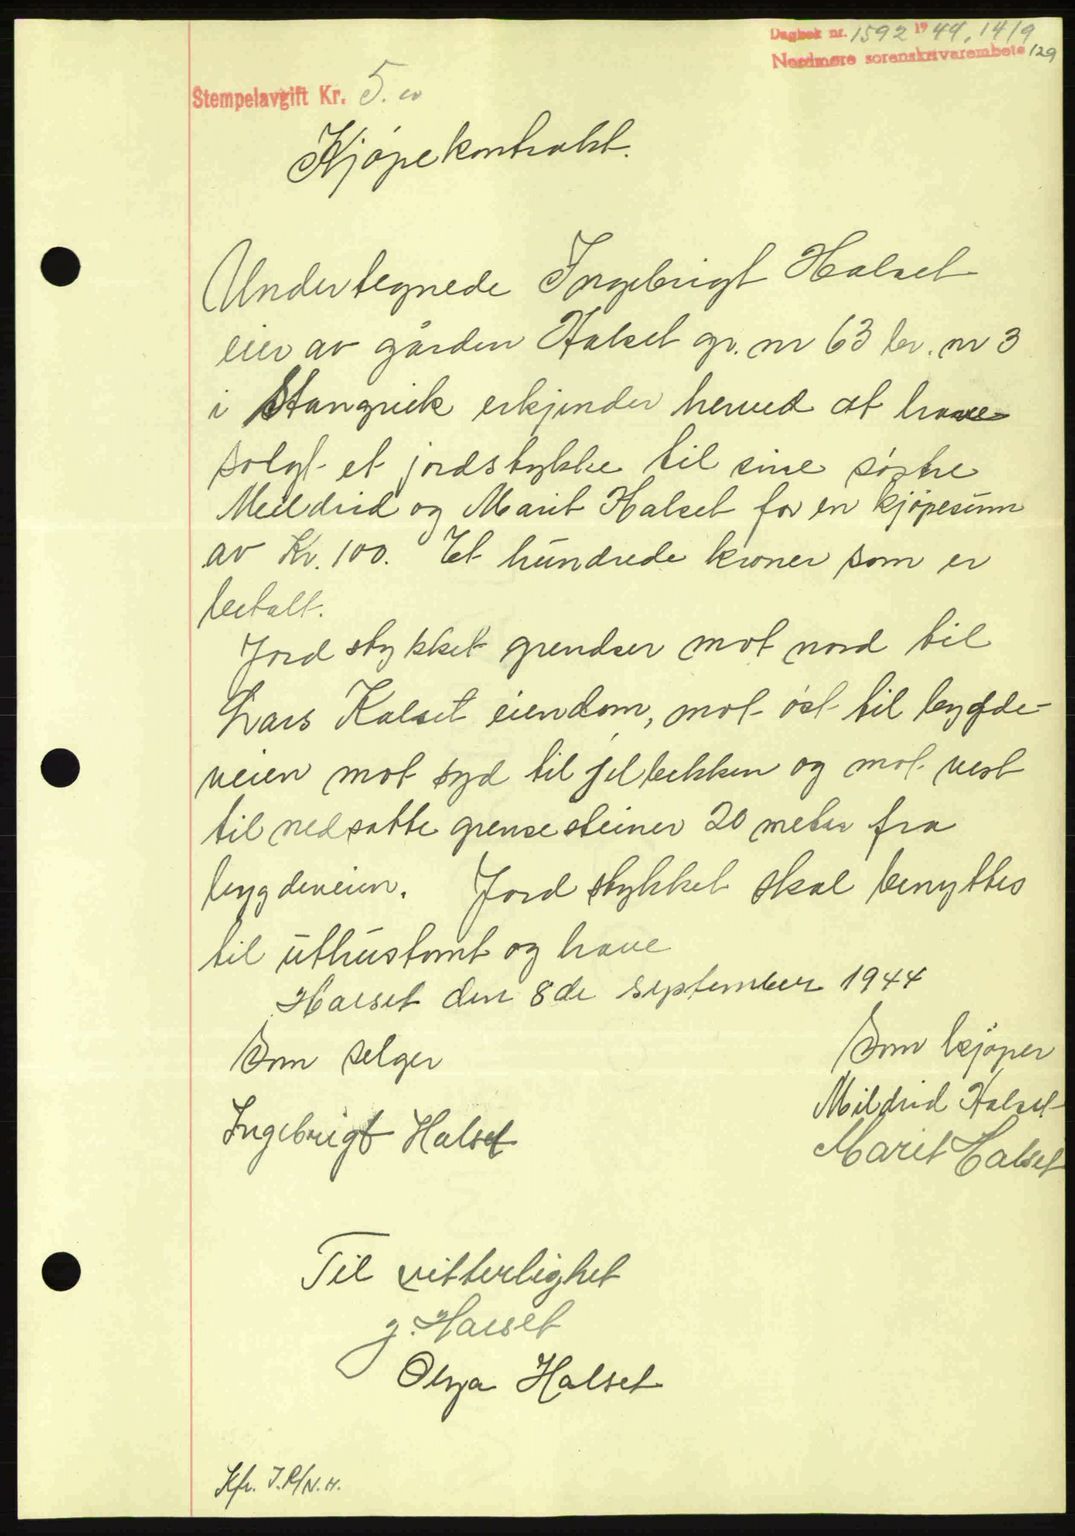 Dagbok nr. 1592 1944, 14/9
Nordmøre sorenskriverembete 129
Stempelavgift Kr. 5.00
Kjöpekontrakt.
Undertegnede Ingebrigt Halset
eier av gården Halset gr. nr 63 br. nr 3
i Stangvik erkjender herved at have
solgt et jordstykke til sine søstre
Meldrid og Marit Halset for en kjöpesum
av Kr. 100. Et hundrede kroner som er
betalt.
Jordstykket grendser mot nord til
Lars Halset eiendom, mot öst til bygde-
veien mot syd til jilbekken og mot vest
til nedsatte grensesteiner 20 meter fra
bygdeveien. Jordstykket skal benyttes
til uthustomt og have
Halset den 8de september 1944
Som selger
Som kjöper
Ingebrigt Halset
Mildrid Halset
Marit Halset
Til vitterlighet
J. Halset
Olga Halset
Kfr. J.R/N.H.